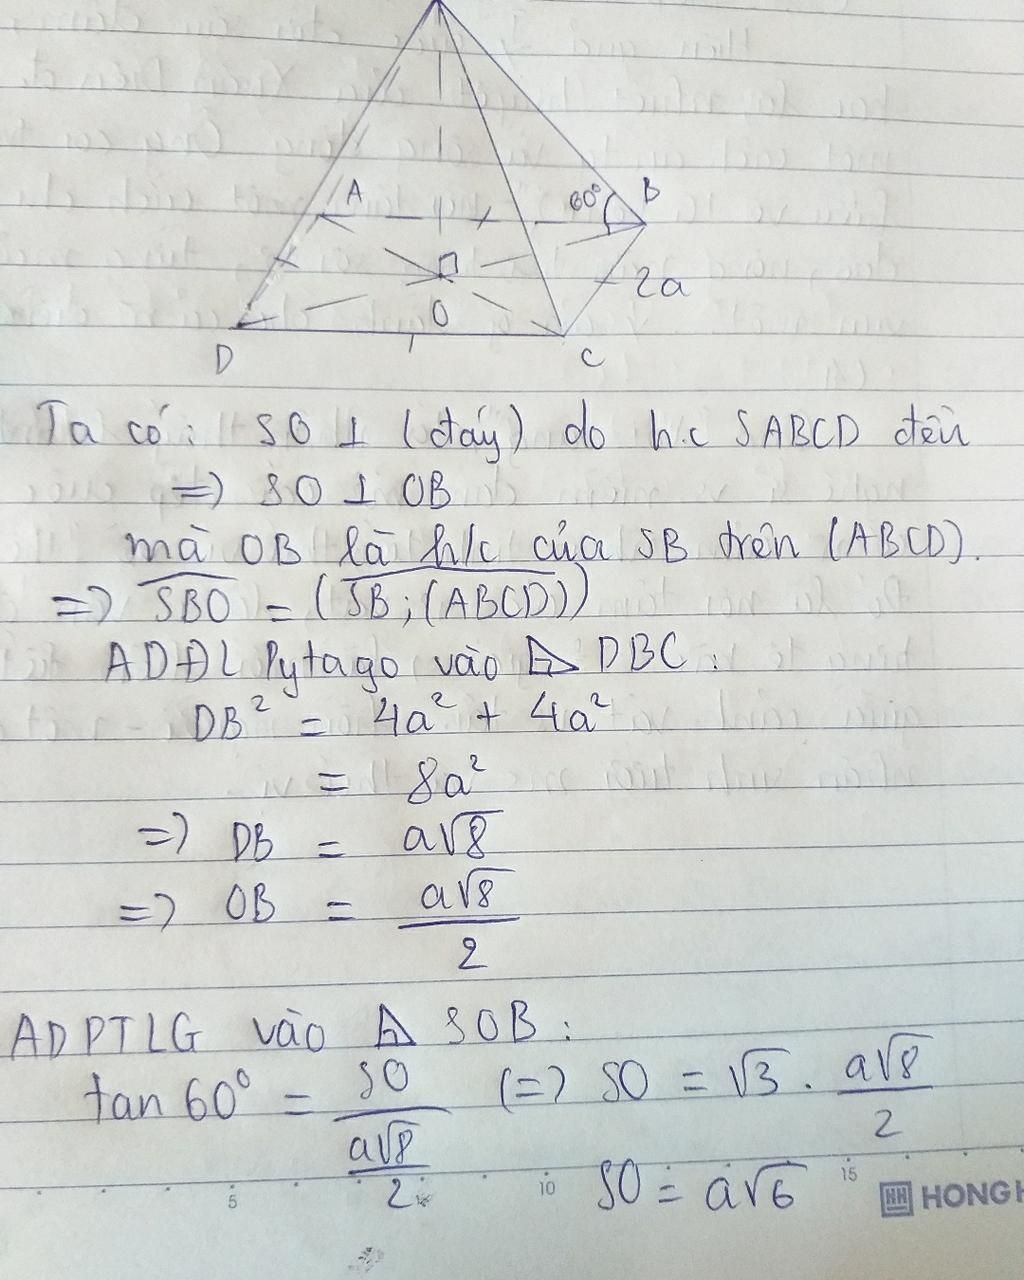 A
60°
B
2a
O
D
C
Ta có: SO ⊥ (đáy) do h.c SABCD đều
=> SO ⊥ OB
mà OB là h/c của SB trên (ABCD).
=> SBO = (SB; (ABCD))
ADĐL Pytago vào ⊿ DBC:
DB² = 4a² + 4a²
= 8a²
=> DB = a√8
=> OB = a√8/2
ADPTLG vào ⊿ SOB:
tan 60° = SO/(a√8/2) (=> SO = √3 . a√8/2
SO = a√6
5 10 15
HONG H